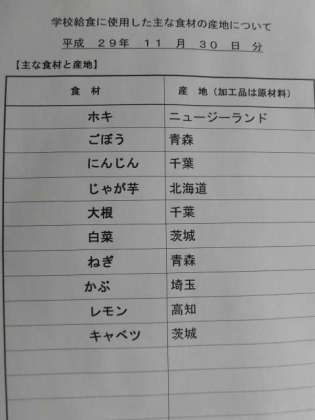 学校給食に使用した主な食材の産地について
平成 29年 11 月 30 日 分
【主な食材と産地】
食 材 産 地（加工品は原材料）
ホキ ニュージーランド
ごぼう 青森
にんじん 千葉
じゃが芋 北海道
大根 千葉
白菜 茨城
ねぎ 青森
かぶ 埼玉
レモン 高知
キャベツ 茨城